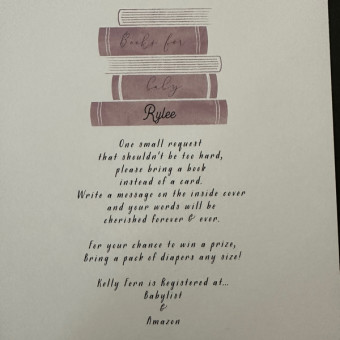 Books for
baby
Rylee
One small request
that shouldn't be too hard,
please bring a book
instead of a card.
Write a message on the inside cover
and your words will be
cherished forever & ever.
For your chance to win a prize,
Bring a pack of diapers any size!
Kelly Fern is Registered at...
Babylist
&
Amazon